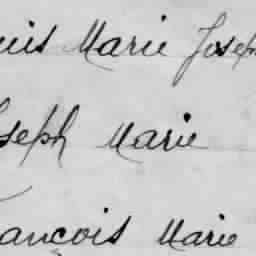 uis Marie Josep
seph Marie
ançois Marie